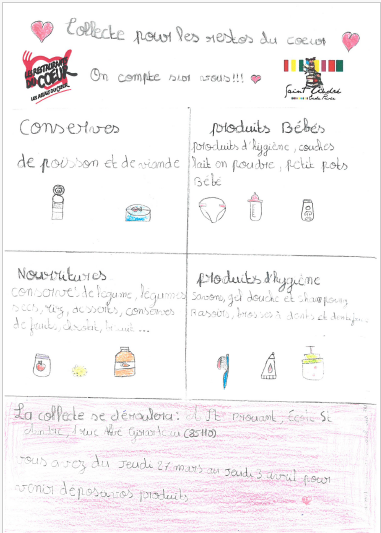 Collecte pour les restos du coeur
LES RESTAURANTS
DU COEUR
LES RELAIS DU COEUR
On compte sur vous!!!
Saint André
Conserves
de poisson et de viande
produits Bébés
produits d'hygiène, couches
lait en poudre, petit pots
Bébé
Nourritures
conserves de légume, légumes
secs, riz, desserts, conserves
de fruits,
produits d'hygiène
savons, gel douche et shampoing
Rasoirs, brosses à dents et dentifrice
La collecte se déroulera: à St
André, 1 rue
vous avez du jeudi 27 mars au jeudi 3 avril pour
venir déposer vos produits